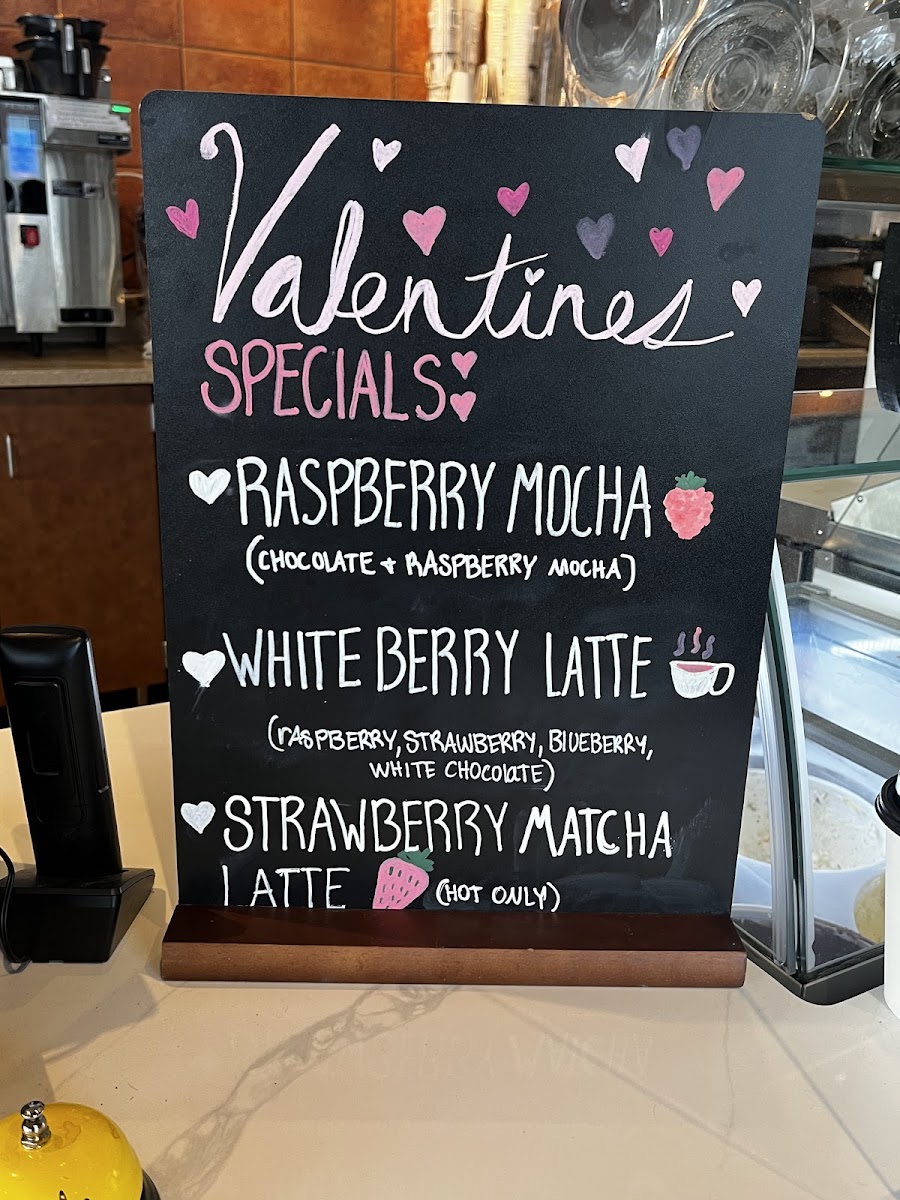 Valentines
SPECIALS
RASPBERRY MOCHA
(CHOCOLATE + RASPBERRY MOCHA)
WHITE BERRY LATTE
(rASPBERRY, STRAWBERRY, BlUEBERRY,
WHITE CHOCOlATE)
STRAWBERRY MATCHA
LATTE (HOT ONLY)